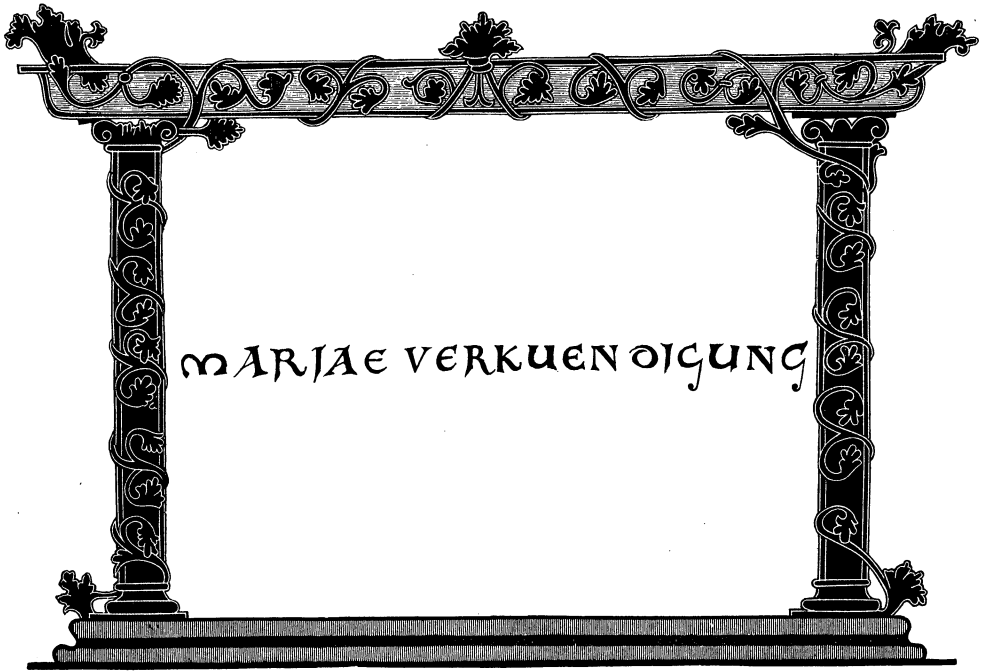 MARJAE VERKUENDIGUNG